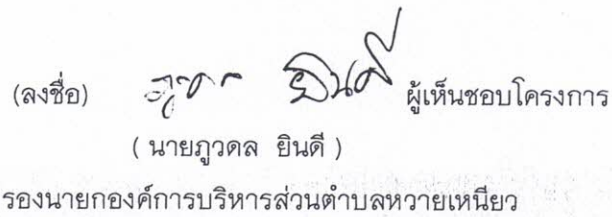 (ลงชื่อ) ภูวดล ยินดี ผู้เห็นชอบโครงการ
( นายภูวดล ยินดี )
รองนายกองค์การบริหารส่วนตำบลหวายเหนียว